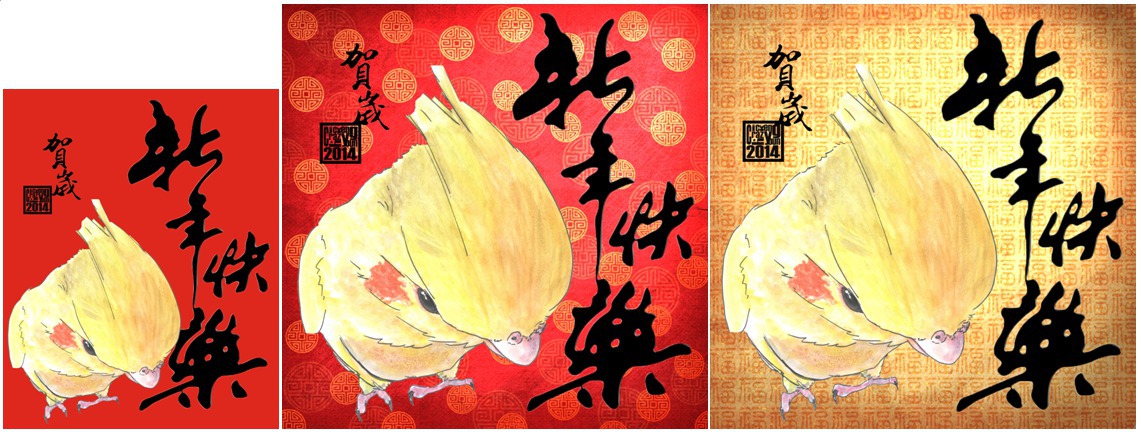 新年快樂
賀歲
2014
新年快樂
賀歲
2014
新年快樂
賀歲
2014